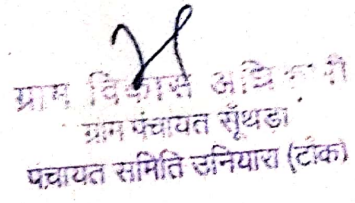 ग्राम विकास अधिकारी
ग्राम पंचायत सूँथडा
पंचायत समिति उनियारा (टोंक)